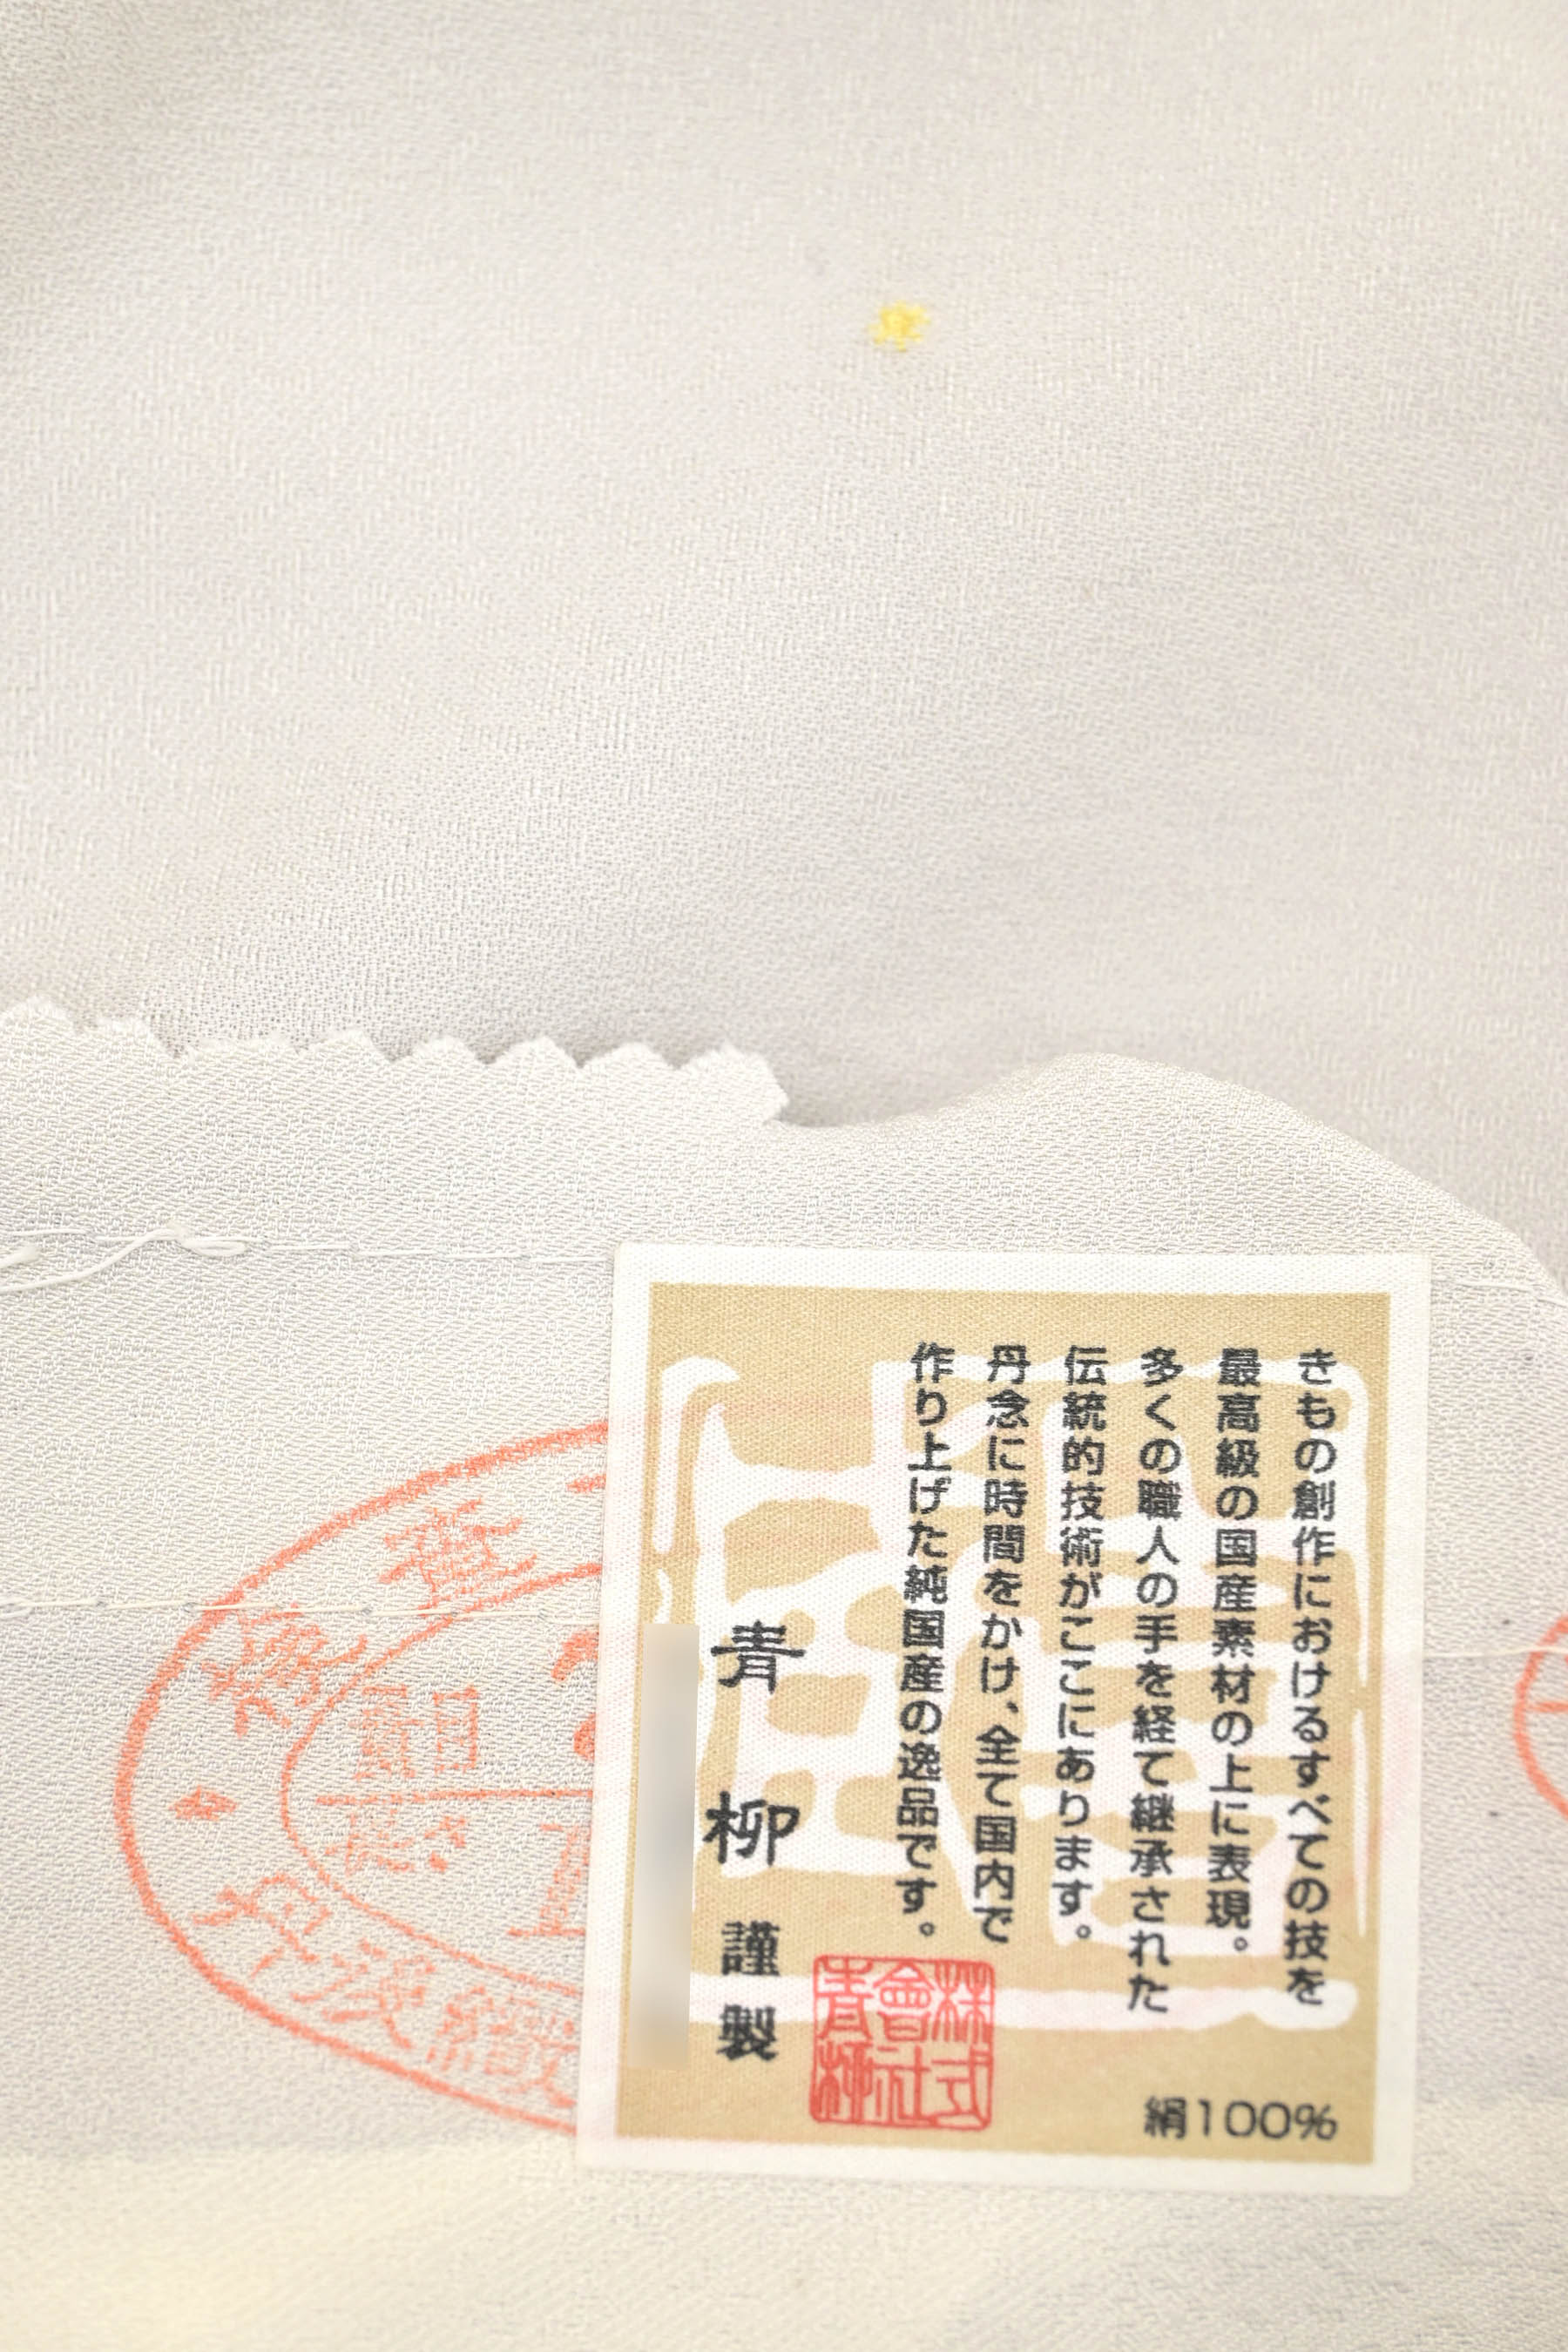 きもの創作におけるすべての技を
最高級の国産素材の上に表現。
多くの職人の手を経て継承された
伝統的技術がここにあります。
丹念に時間をかけ、全て国内で
作り上げた純国産の逸品です。
青柳謹製
株式
會社
青柳
絹100%
丹後織